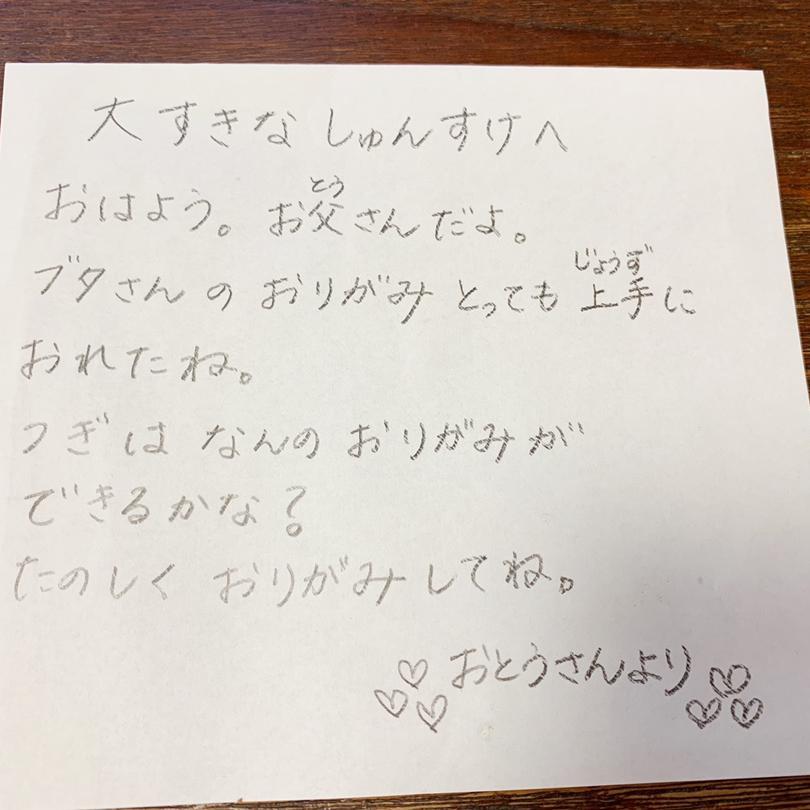 大すきなしゅんすけへ
おはよう。お父さんだよ。
とう
ブタさんの おりがみ とっても 上手に
じょうず
おれたね。
つぎは なんの おりがみが
できるかな？
たのしく おりがみしてね。
♡♡♡おとうさんより♡♡♡